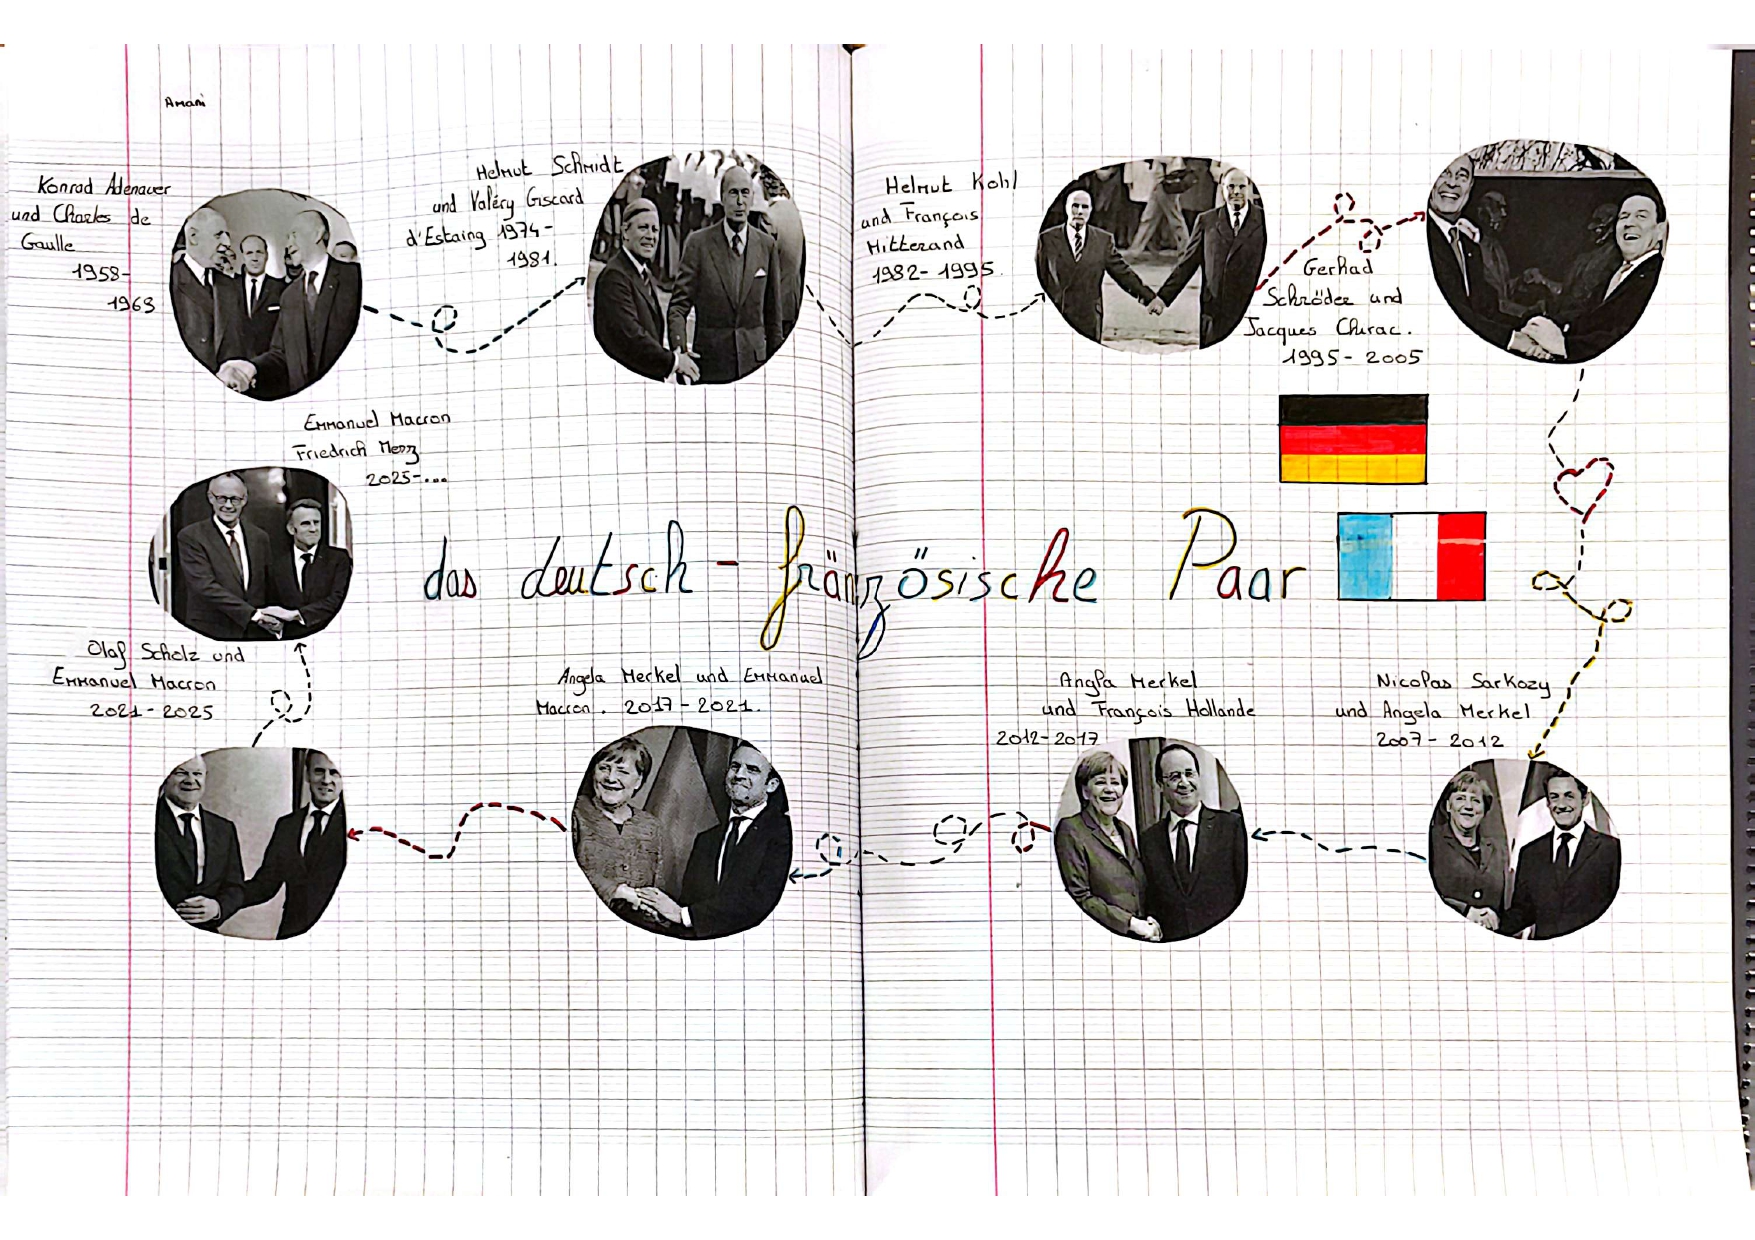 Amani
Konrad Adenauer
und Charles de
Gaulle
1958-
1963
Helmut Schmidt
und Valéry Giscard
d'Estaing 1974-
1981.
Helmut Kohl
und François
Mitterand
1982-1995.
Gerhad
Schröder und
Jacques Chirac.
1995-2005
Emmanuel Macron
Friedrich Merz
2025-...
das deutsch-fränzösische Paar
Olaf Scholz und
Emmanuel Macron
2021-2025
Angela Merkel und Emmanuel
Macron. 2017-2021.
Angla Merkel
und François Hollande
2012-2017
Nicolas Sarkozy
und Angela Merkel
2007-2012